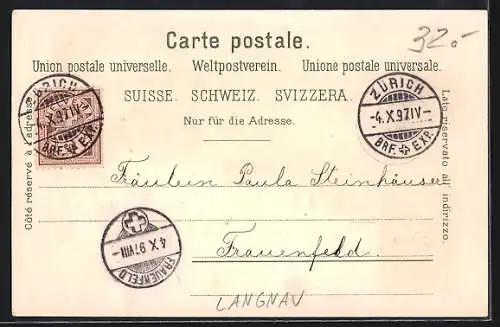 Carte postale.
32.-
Union postale universelle. Weltpostverein. Unione postale universale.
SUISSE. SCHWEIZ. SVIZZERA.
Nur für die Adresse.
Côté réservé à l'adresse.
Lato riservato all' indirizzo.
ZÜRICH
X.97.IV-
BRF. EXP.
ZÜRICH
-4.X.97.IV-
BRF. EXP.
Fräulein Paula Steinhäuser
Frauenfeld.
4.X.97.VIII-
FRAUENFELD
LANGNAU